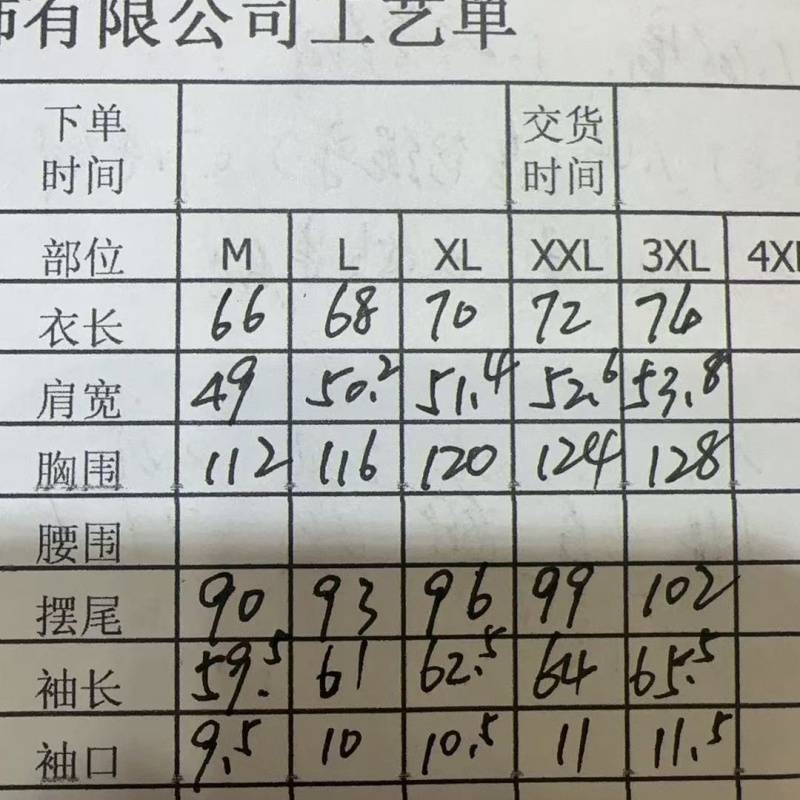 饰有限公司工艺单
下单时间 交货时间
部位 M L XL XXL 3XL 4XL
衣长 66 68 70 72 74
肩宽 49 50.2 51.4 52.6 53.8
胸围 112 116 120 124 128
腰围
摆尾 90 93 96 99 102
袖长 59.5 61 62.5 64 65.5
袖口 9.5 10 10.5 11 11.5